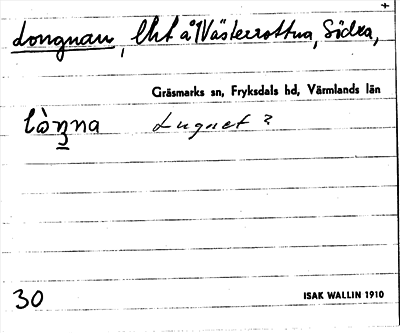 +
Longnan, lht å Västerrottna, Södra,
Gräsmarks sn, Fryksdals hd, Värmlands län
lò̀n̠na Lugnet ?
30
ISAK WALLIN 1910